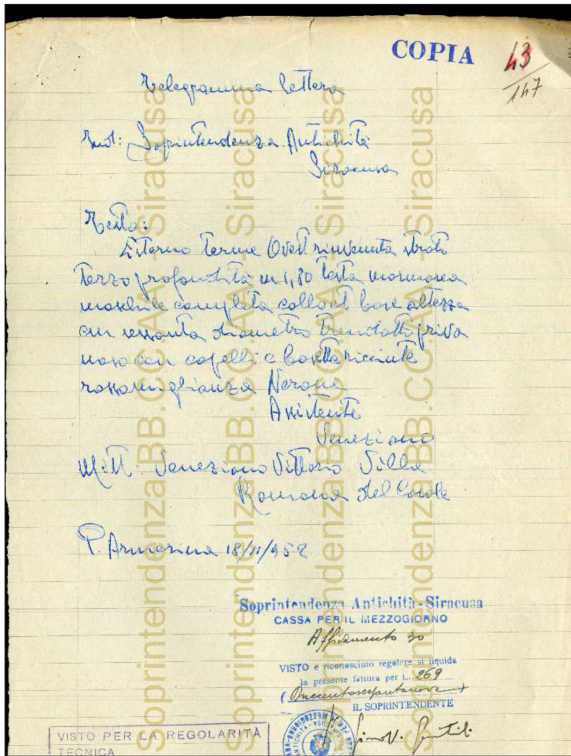 COPIA
43
147
Telegramma lettera
Ind: Soprintendenza Antichità
Siracusa
Testo:
Esterno Terme Ovest rinvenuta strato
terzo profondità m 1,80 testa marmorea
maschile completa collo et base altezza
cm sessanta diametro trentotto priva
naso con capelli e basette ricciute
rassomiglianza Nerone
Assistente
Veneziano
Mitt: Veneziano Vittorio Villa
Romana del Casale
P. Armerina 18/11/952
Soprintendenza Antichità - Siracusa
CASSA PER IL MEZZOGIORNO
Affidamento 30
VISTO e riconosciuto regolare si liquida
la presente fattura per L. 269
(Duecentosessantanove)
IL SOPRINTENDENTE
VISTO PER LA REGOLARITÀ
TECNICA